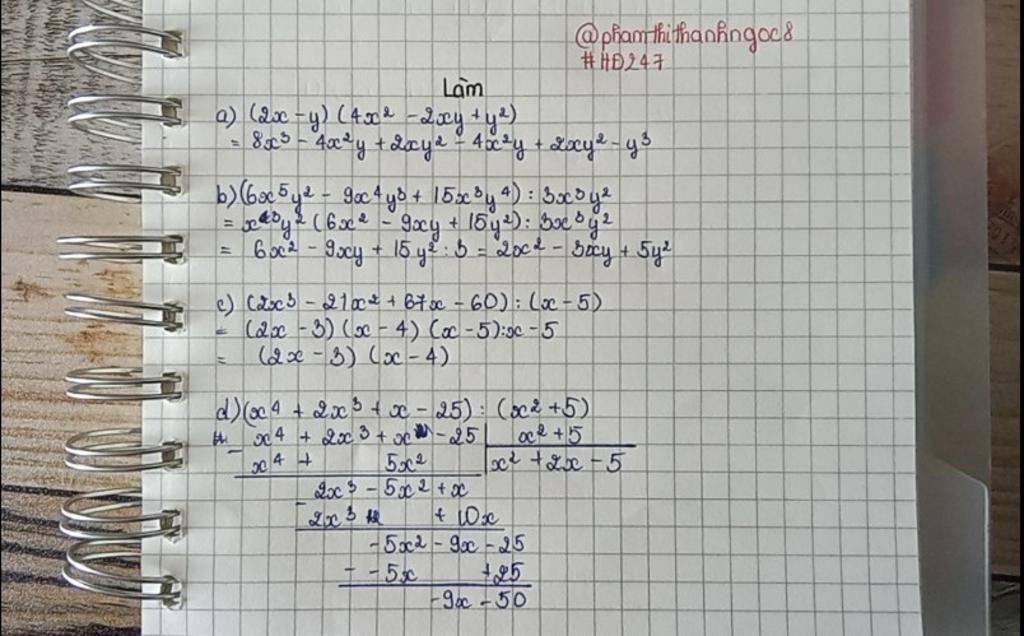 @phamthithanhngoc8
#HD247
Làm
a) (2x - y) (4x² - 2xy + y²)
= 8x³ - 4x²y + 2xy² - 4x²y + 2xy² - y³
b) (6x⁵y² - 9x⁴y³ + 15x³y⁴) : 3x³y²
= x³y² (6x² - 9xy + 15y²) : 3x³y²
= 6x² - 9xy + 15y² : 3 = 2x² - 3xy + 5y²
c) (2x³ - 21x² + 67x - 60) : (x - 5)
= (2x - 3) (x - 4) (x - 5) : x - 5
= (2x - 3) (x - 4)
d) (x⁴ + 2x³ + x - 25) : (x² + 5)
x⁴ + 2x³ + x - 25 | x² + 5
- x⁴ + 5x² | x² + 2x - 5
2x³ - 5x² + x
- 2x³ + 10x
-5x² - 9x - 25
- -5x +25
-9x - 50